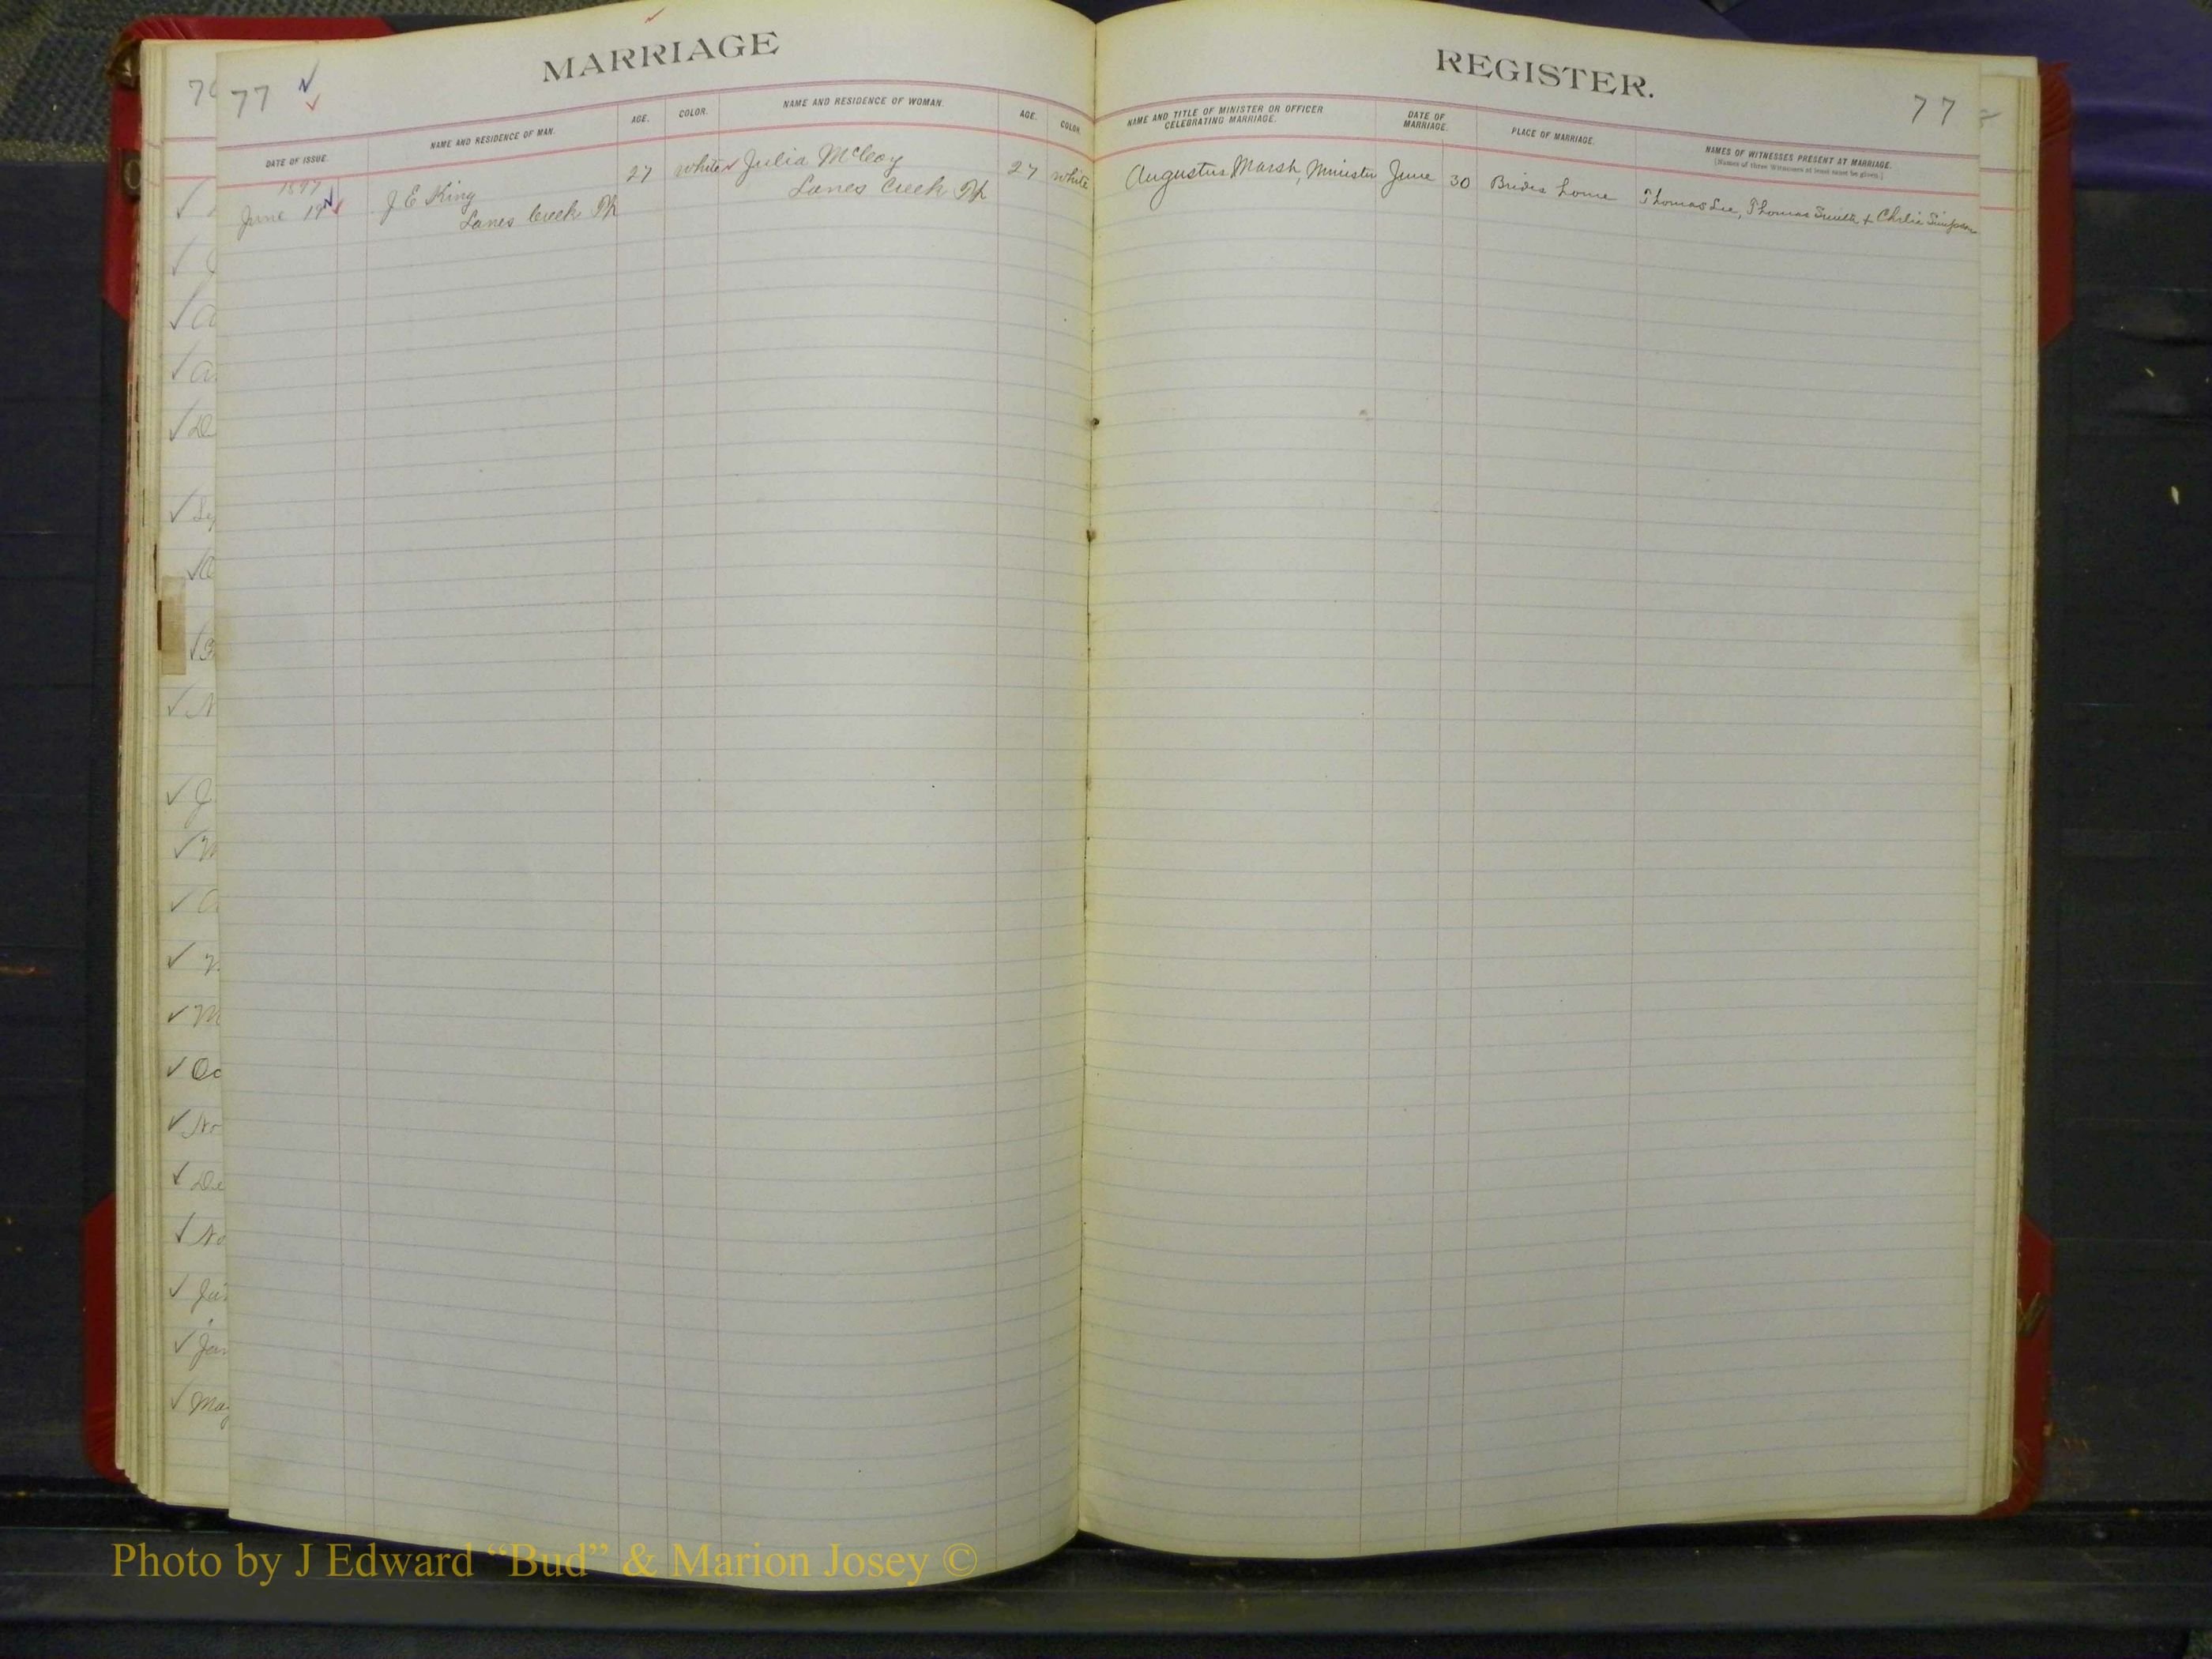 MARRIAGE
REGISTER.
77
77
DATE OF ISSUE.
NAME AND RESIDENCE OF MAN.
AGE.
COLOR.
NAME AND RESIDENCE OF WOMAN.
AGE.
COLOR.
NAME AND TITLE OF MINISTER OR OFFICER
CELEBRATING MARRIAGE.
DATE OF
MARRIAGE.
PLACE OF MARRIAGE.
NAMES OF WITNESSES PRESENT AT MARRIAGE.
[Names of three Witnesses at least must be given.]
1897
June 19
J E King
Lanes Creek
27
white
Julia McCoy
Lanes Creek
27
white
Augustus Marsh, Minister
June 30
Brides home
Thomas Lee, Thomas Smith + Simpson
Oc
No
De
No
Jan
May
Photo by J Edward “Bud” & Marion Josey ©